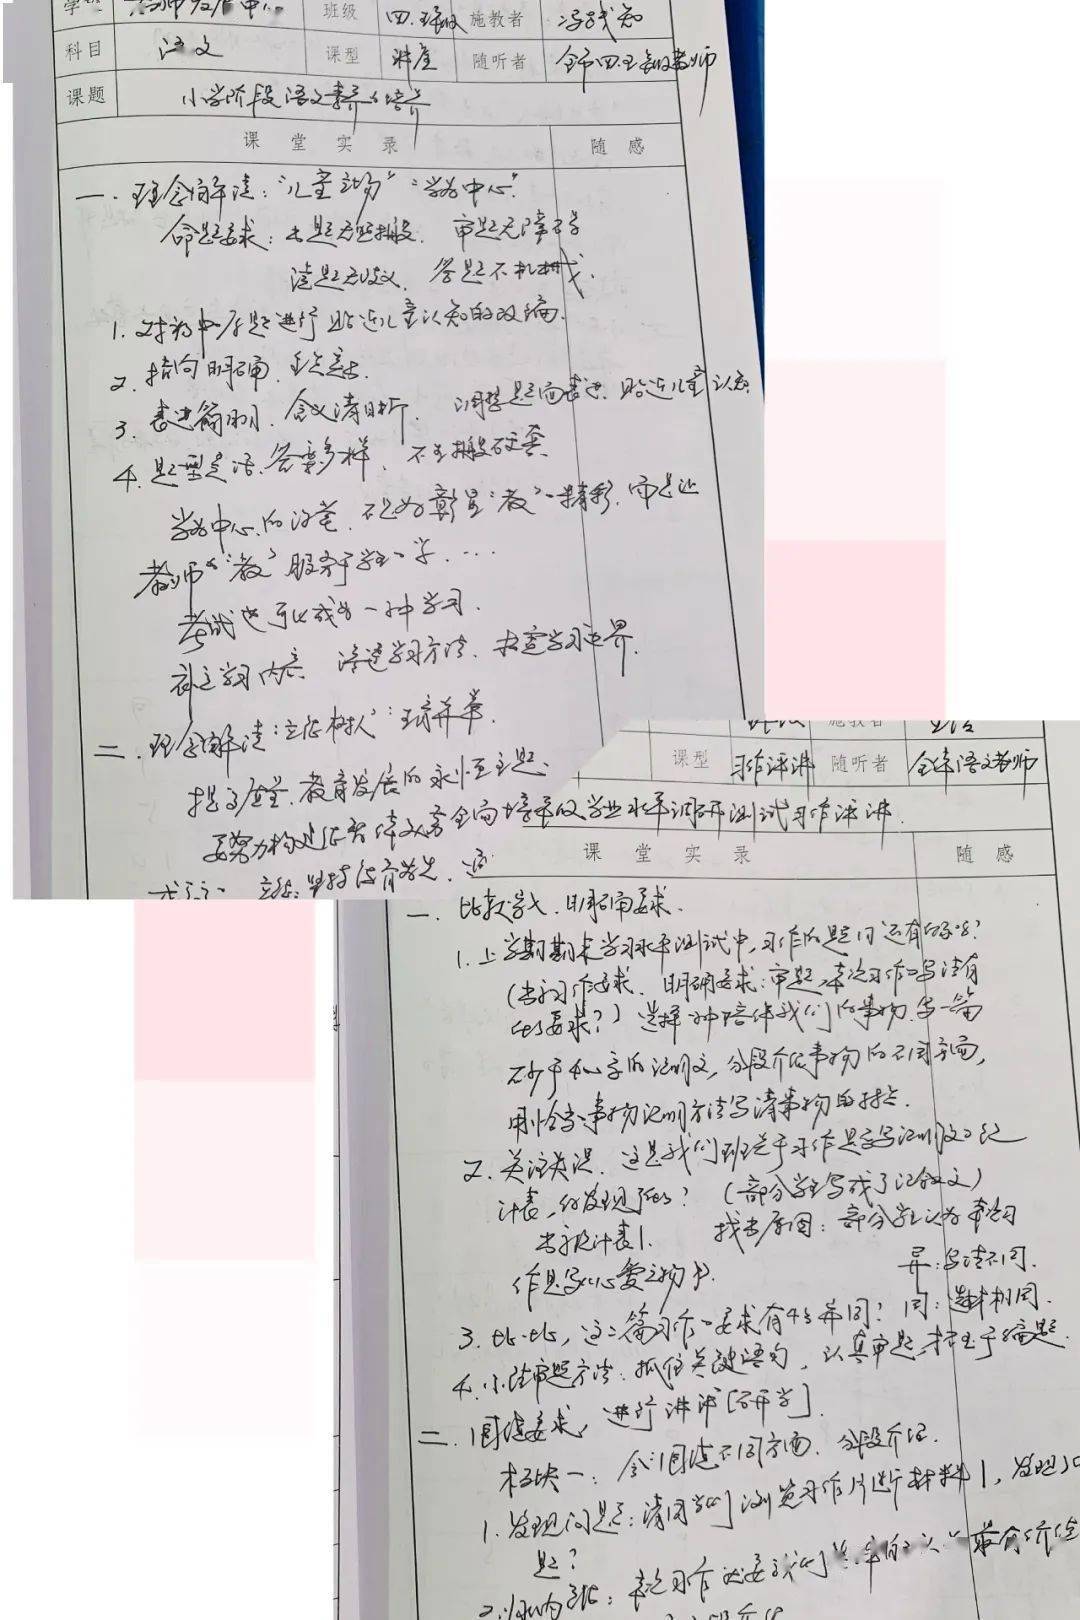 班级 四.五年级 施教者
科目 语文 课型 讲座 随听者 全市四.五年级教师
课题 小学阶段语文素养的培养
课堂实录 随感
一.理念解读:“儿童立场”“学为中心”.
命题要求:出题无照搬. 审题无障碍
读题无歧义. 答题不机械.
1.对初中原题进行贴近儿童认知的改编.
2.指向明确.重点突出.
3.表述简明.含义清晰. 调整题面表述.贴近儿童认知
4.题型灵活.答案多样. 不生搬硬套
学为中心的课堂.不是为彰显“教”的精彩.而是让
教师的“教”服务于学生的学....
考试也可以成为一种学习.
补充学习内容 渗透学习方法.拓宽学习边界.
二.理念解读:“立德树人”“五育并举.
提高质量.教育发展的永恒主题.
要努力构建德智体美劳全面培养的
课型 习作评讲 随听者 全体语文老师
学业水平调研测试习作评讲.
课堂实录 随感
一.比较学习.明确要求.
1.上学期期末学习水平测试中,习作的题目还有印象吗?
(出示习作要求.明确要求:审题,本次习作的写法有
什么要求?)选择一种陪伴我们的事物.写一篇
不少于400字的说明文,分段介绍事物的不同方面,
用恰当的事物说明方法写清事物的特点.
2.关注失误.这是我们班关于习作是否写说明文的统
计表,你发现了什么?(部分学生写成了记叙文)
出示统计表1. 找出原因:部分学生认为本次习
作是写心爱之物.
异:写法不同.
3.比一比,这二篇习作的要求有什么异同?同:选材相同.
4.小结审题方法:抓住关键语句,认真审题,
二.围绕要求,进行讲评[研学].
板块一:会围绕不同方面.分段介绍.
1.发现问题:请同学们浏览习作片断材料1,发现
题?
2.归纳